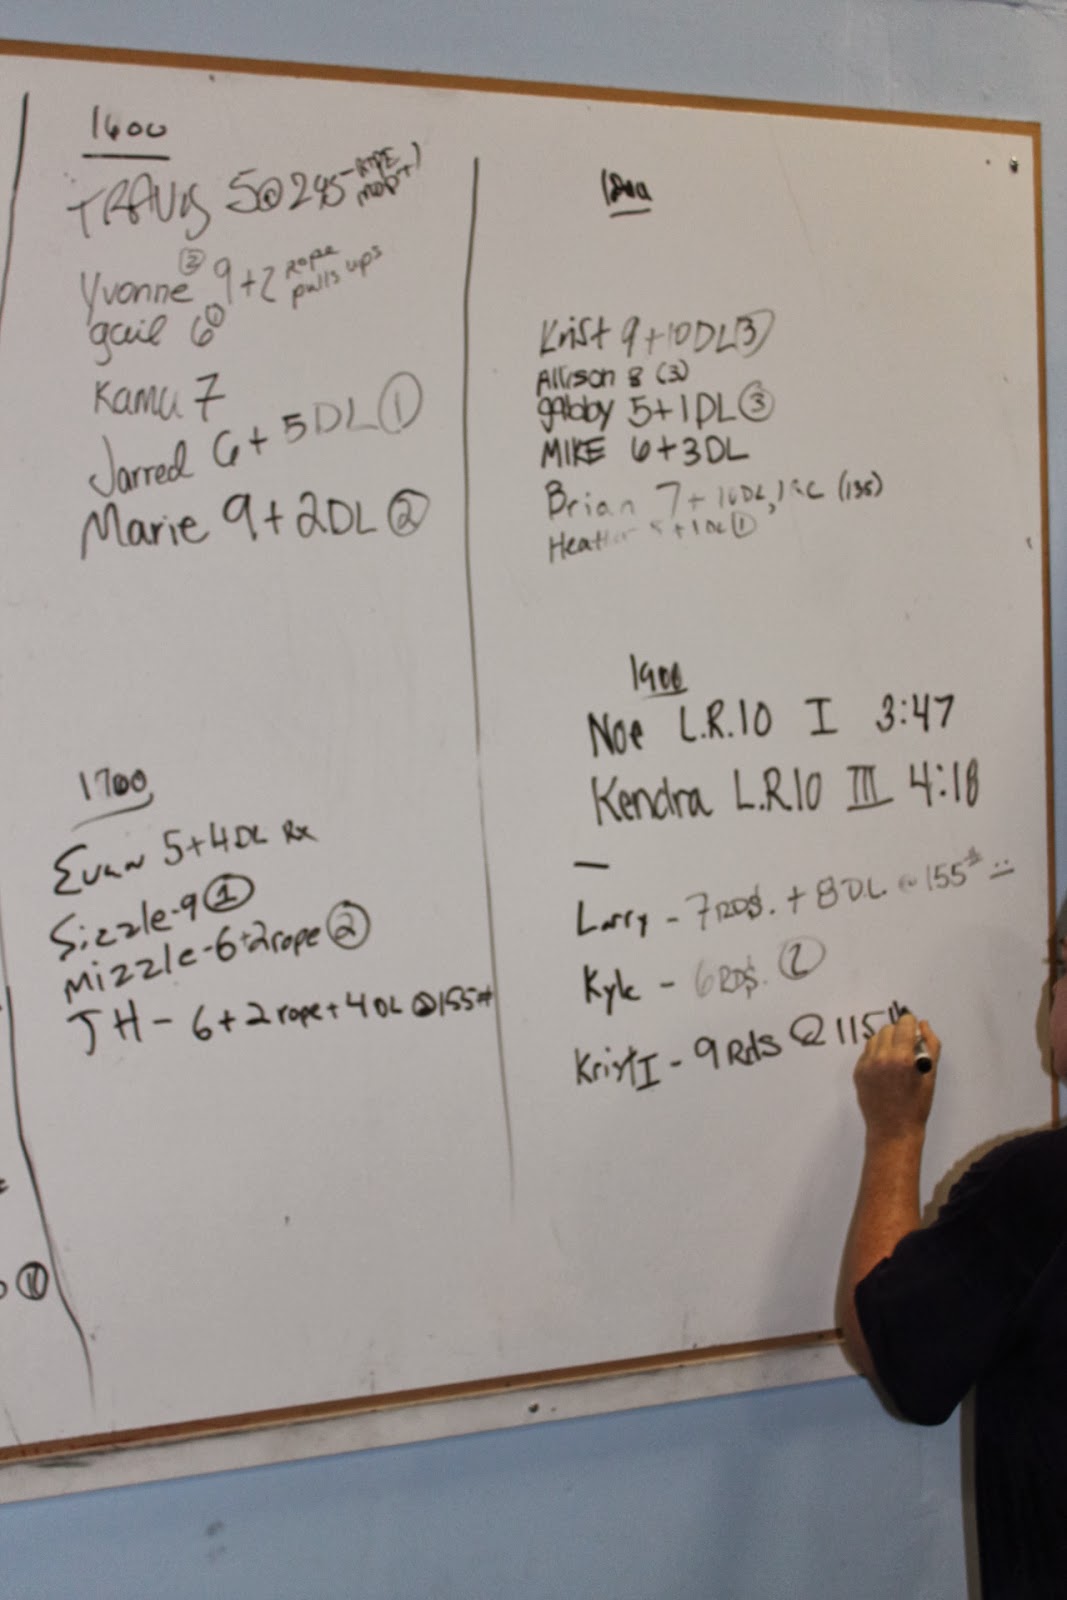 1600
TRAVIS 5@245-ROPE MOD'T)
Yvonne ② 9+2 rope pulls ups
gail 6①
Kamu 7
Jarred 6+5DL①
Marie 9+2DL②
1700
Evan 5+4DL Rx
Sizzle-9①
Mizzle-6+2rope②
JH-6+2rope+4DL@155#
Krist 9+10DL③
Allison 8 (3)
gabby 5+1DL③
MIKE 6+3DL
Brian 7+10DL, (135)
Heather 5+1DL①
1900
Noe L.R.10 I 3:47
Kendra L.R.10 III 4:18
—
Larry - 7RDS. + 8DL @155#
Kyle - 6RDS. ②
KristI - 9Rds @ 115
⑩